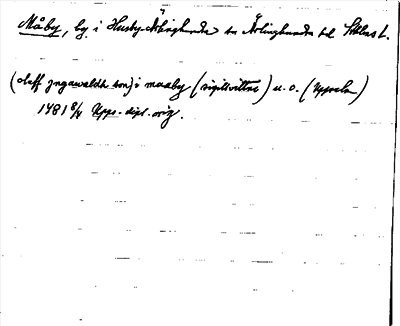 Måby, by i Husby-Ärlinghundra sn Ärlinghundra hd Sthlms l.
(olaff jngewaldz son) i maaby (sigillvittne) u. o. (Uppsala)
1481 8/4 Upps. dipl. orig.